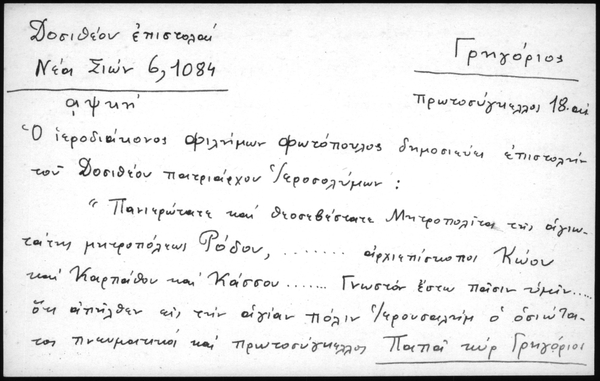 Δοσιθέου ἐπιστολαί
Νέα Σιών 6, 1084
Γρηγόριος
πρωτοσύγκελλος 18. αἰ
αψκη'
Ὁ ἱεροδιάκονος Φιλήμων Φωτόπουλος δημοσιεύει ἐπιστολὴν
τοῦ Δοσιθέου πατριάρχου Ἱεροσολύμων :
"Πανιερώτατε καὶ θεοσεβέστατε Μητροπολῖτα τῆς ἁγιω-
τάτης μητροπόλεως Ρόδου, ........ ἀρχιεπίσκοποι Κώου
καὶ Καρπάθου καὶ Κάσσου ....... Γνωστὸν ἔστω πᾶσιν ὑμῖν.....
ὅτι ἀπῆλθεν εἰς τὴν ἁγίαν πόλιν Ἱερουσαλὴμ ὁ ὁσιώτα-
τος πνευματικὸς καὶ πρωτοσύγκελλος Παπᾶ κὺρ Γρηγόριος